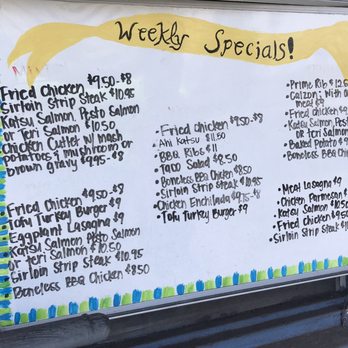 Weekly Specials!
Fried Chicken $9.50-$8
Sirloin Strip Steak $10.95
Katsu Salmon, Pesto Salmon
or Teri Salmon $10.50
Chicken Cutlet w/ mash
potatoes & mushroom or
brown gravy $9.95-$8
Fried Chicken $9.50-$8
Tofu Turkey Burger $9
Eggplant Lasagna $9
Katsu Salmon, Pesto Salmon
or Teri Salmon $10.50
Sirloin Strip Steak $10.95
Boneless BBQ Chicken $8.50
•Fried Chicken $9.50-$8
•Ahi Katsu $11.50
•BBQ Ribs $11
•Taco Salad $8.50
•Boneless BBQ Chicken $8.50
•Sirloin Strip Steak $10.95
•Chicken Enchilada $9.75-$8
•Tofu Turkey Burger $9
•Prime Rib $12.50
•Calzone with or
meat $9
•Fried Chicken
•Katsu Salmon, Pesto
or Teri Salmon
•Baked Potato $9
•Boneless BBQ Chi
•Meat Lasagna $9
•Chicken Parmesan $
•Katsu Salmon $10.50
•Fried Chicken $9.50
•Sirloin Strip Steak $10